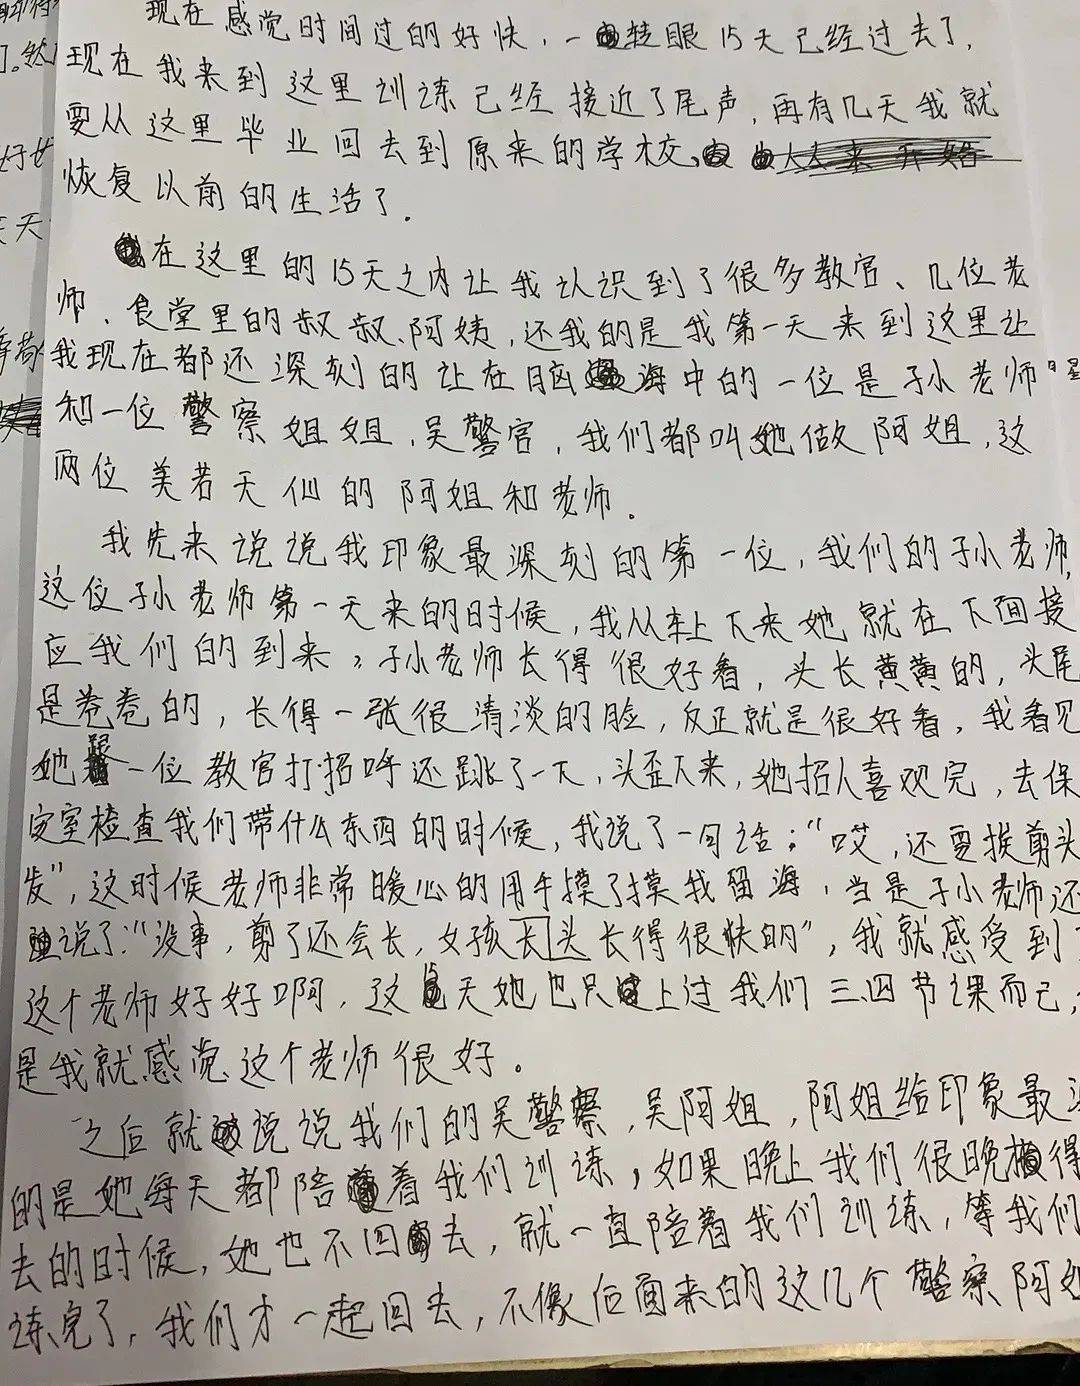 现在感觉时间过的好快，一转眼15天已经过去了，
现在我来到这里训练已经接近了尾声，再有几天我就
要从这里毕业回去到原来的学校、
恢复以前的生活了．
在这里的15天之内让我认识到了很多教官、几位老
师、食堂里的叔叔、阿姨，还我的是我第一天来到这里让
我现在都还深刻的让在脑海中的一位是孙老师
和一位警察姐姐，吴警官，我们都叫她做阿姐，这
两位美若天仙的阿姐和老师．
我先来说说我印象最深刻的第一位，我们的孙老师，
这位孙老师第一天来的时候，我从车上下来她就在下面接
应我们的到来，孙老师长得很好看，头长黄黄的，头尾
是卷卷的，长得一张很清淡的脸，反正就是很好看，我看见
她跟一位教官打招呼还跳了一下，头歪下来，她招人喜观完，去保
安室检查我们带什么东西的时候，我说了一句话：“哎，还要挨剪头
发”，这时候老师非常暖心的用手摸了摸我留海，当是孙老师还
说了：“没事，剪了还会长，女孩头长得很快的”，我就感受到了
这个老师好好啊，这15天她也只上过我们三四节课而已，
是我就感觉这个老师很好。
之后就说说我们的吴警察，吴阿姐，阿姐给印象最深
的是她每天都陪着我们训练，如果晚上我们很晚得
去的时候，她也不回去，就一直陪着我们训练，等我们
练完了，我们才一起回去，不像后面来的这几个警察阿姐